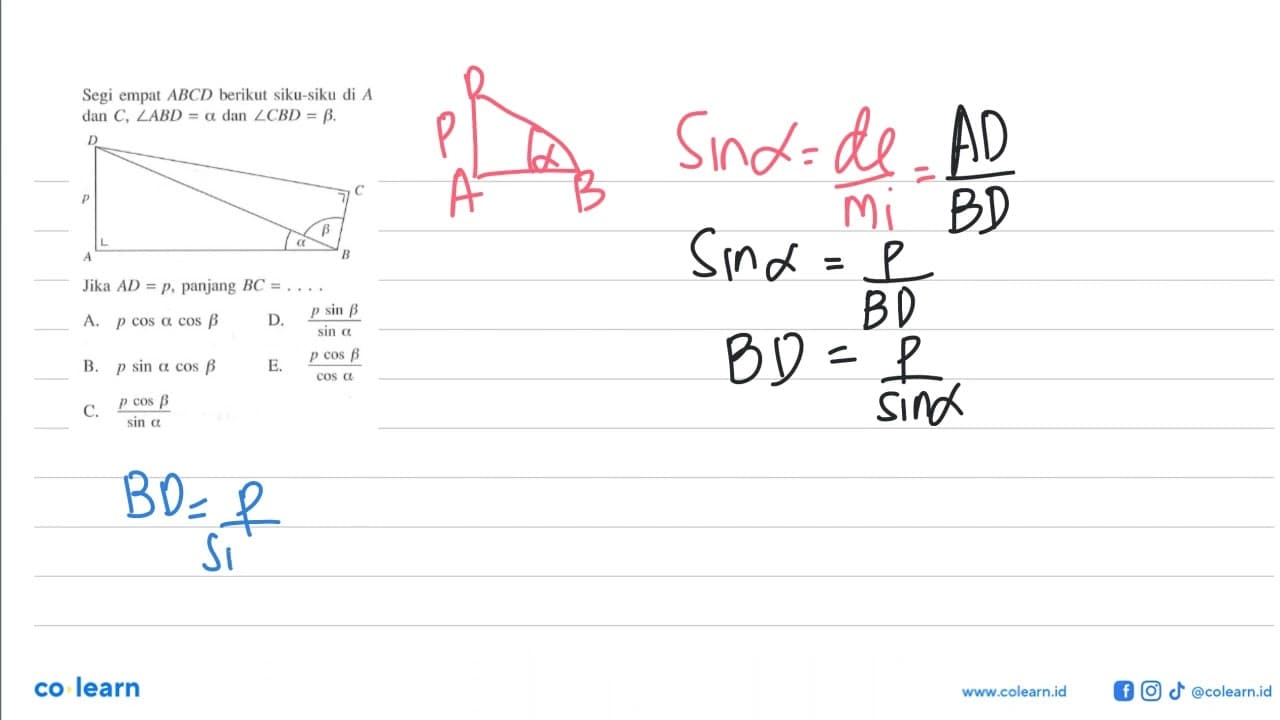 Segi empat ABCD berikut siku-siku di A
dan C, ∠ABD = α dan ∠CBD = β.
D
p
A
C
B
α
β
Jika AD = p, panjang BC = . . . .
A. p cos α cos β
B. p sin α cos β
C. p cos β / sin α
D. p sin β / sin α
E. p cos β / cos α
P
A
α
B
Sin α = de / mi = AD / BD
Sin α = P / BD
BD = P / sin α
BD = P / Si
co learn
www.colearn.id
@colearn.id